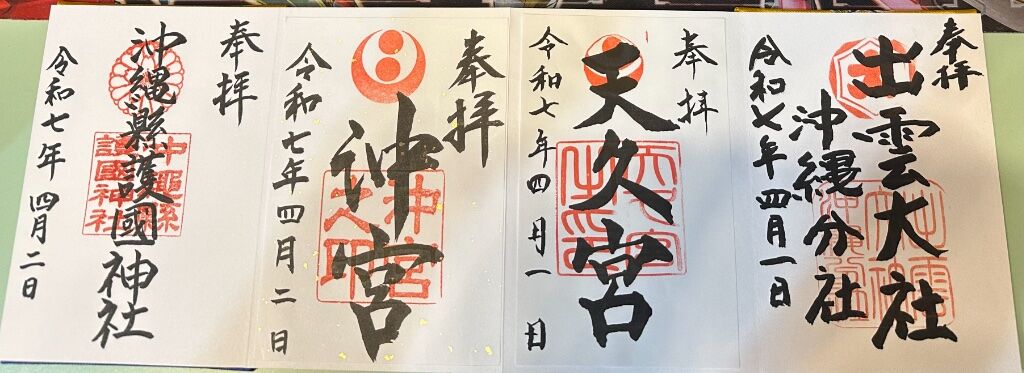 奉拝
出雲大社
沖縄分社
令和七年四月一日
奉拝
天久宮
令和七年四月一日
奉拝
沖宮
令和七年四月二日
奉拝
沖縄縣護國神社
令和七年四月二日